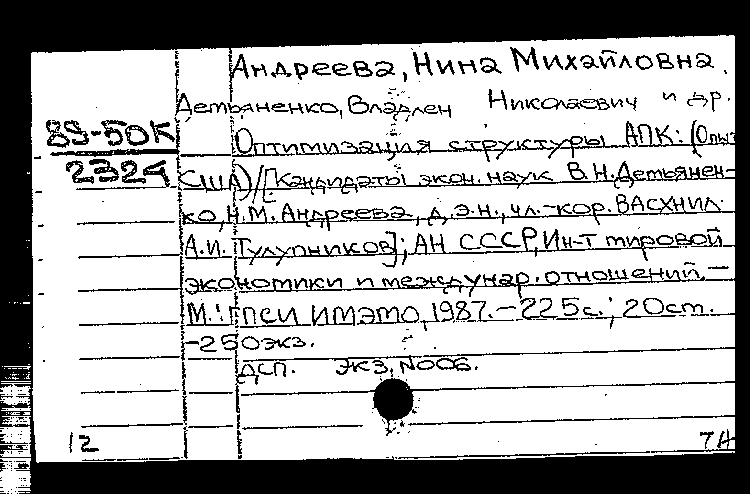 Андреева, Нина Михайловна.
Детьяненко, Владлен Николаевич и др.
89-50К
2324
Оптимизация структуры АПК: (Опыт
США)/[Кандидаты экон. наук В.Н.Детьянен-
ко, Н.М. Андреева, д.э.н., чл.-кор. ВАСХНИЛ
А.И. Тулупников]; АН СССР, Ин-т мировой
экономики и междунар. отношений. -
М.: ГПСИ ИМЭМО, 1987. - 225 с.; 20 ст.
- 250 экз.
ДСП. Экз. N006.
12